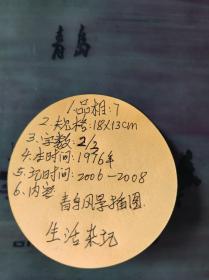 青岛
1.品相:7
2.规格:18X13cm
3.字数:2/3
4.本时间:1976年
5.记时间:2006-2008
6.内容
青岛风景插图
生活杂记